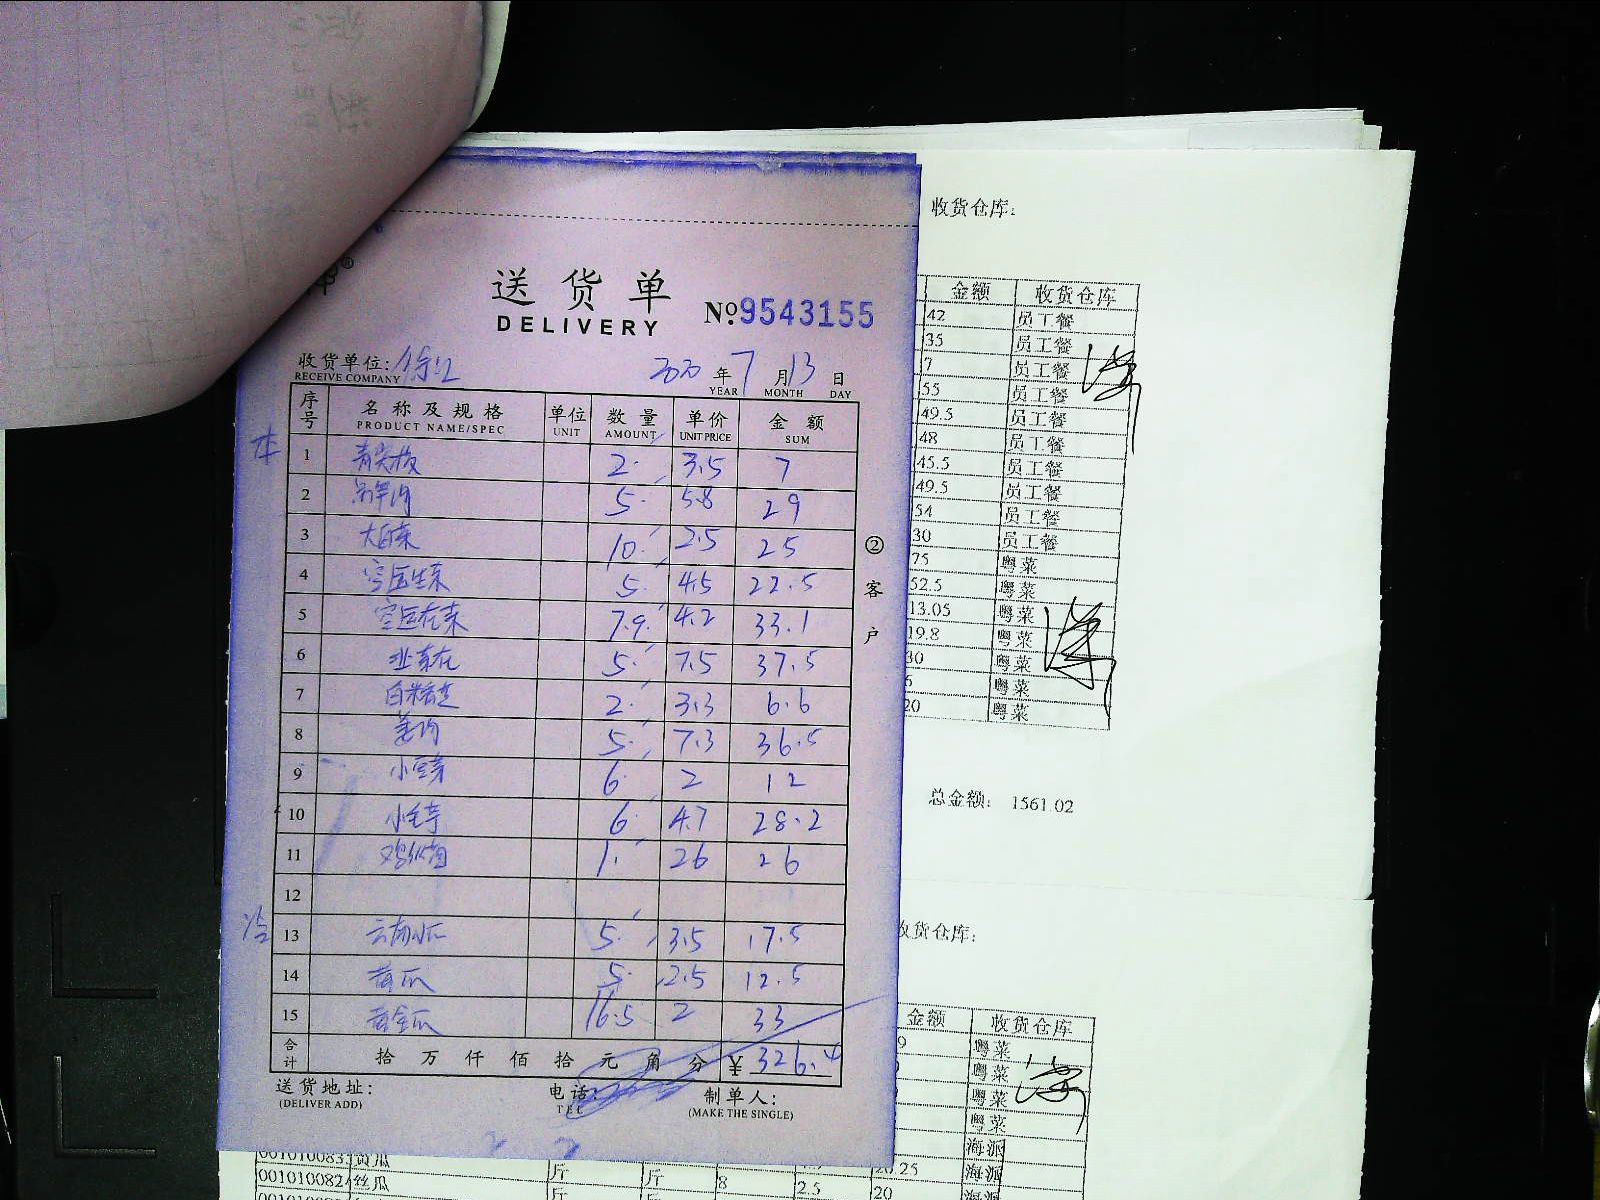 送货单
DELIVERY
№ 9543155
收货单位: 徐汇
RECEIVE COMPANY
年 7 月 13 日
YEAR MONTH DAY
序号 名称及规格 单位 数量 单价 金额
PRODUCT NAME/SPEC UNIT AMOUNT UNIT PRICE SUM
本
1 青尖椒 2 3.5 7
2 5 5.8 29
3 大白菜 10 2.5 25
4 空运生菜 5 4.5 22.5
5 空运花菜 7.9 4.2 33.1
6 5 7.5 37.5
7 白米苋 2 3.3 6.6
8 姜肉 5 7.3 36.5
9 小豆芽 6 2 12
10 小毛芋 6 4.7 28.2
11 1 26 26
12
冷
13 云南小瓜 5 3.5 17.5
14 黄瓜 5 2.5 12.5
15 黄金瓜 16.5 2 33
合计 拾 万 仟 佰 拾 元 角 分 ¥ 326.4
送货地址: 电话: 制单人:
(DELIVER ADD) TEL (MAKE THE SINGLE)
②客户
收货仓库:
金额 收货仓库
42 员工餐
35 员工餐
7 员工餐
55 员工餐
49.5 员工餐
48 员工餐
45.5 员工餐
49.5 员工餐
54 员工餐
30 员工餐
75 粤菜
52.5 粤菜
13.05 粤菜
19.8 粤菜
30 粤菜
粤菜
20 粤菜
总金额: 1561.02
收货仓库:
金额 收货仓库
粤菜
粤菜
粤菜
粤菜
海派
黄瓜 斤 斤 20.25 海派
丝瓜 斤 斤 8 2.5 20 海派